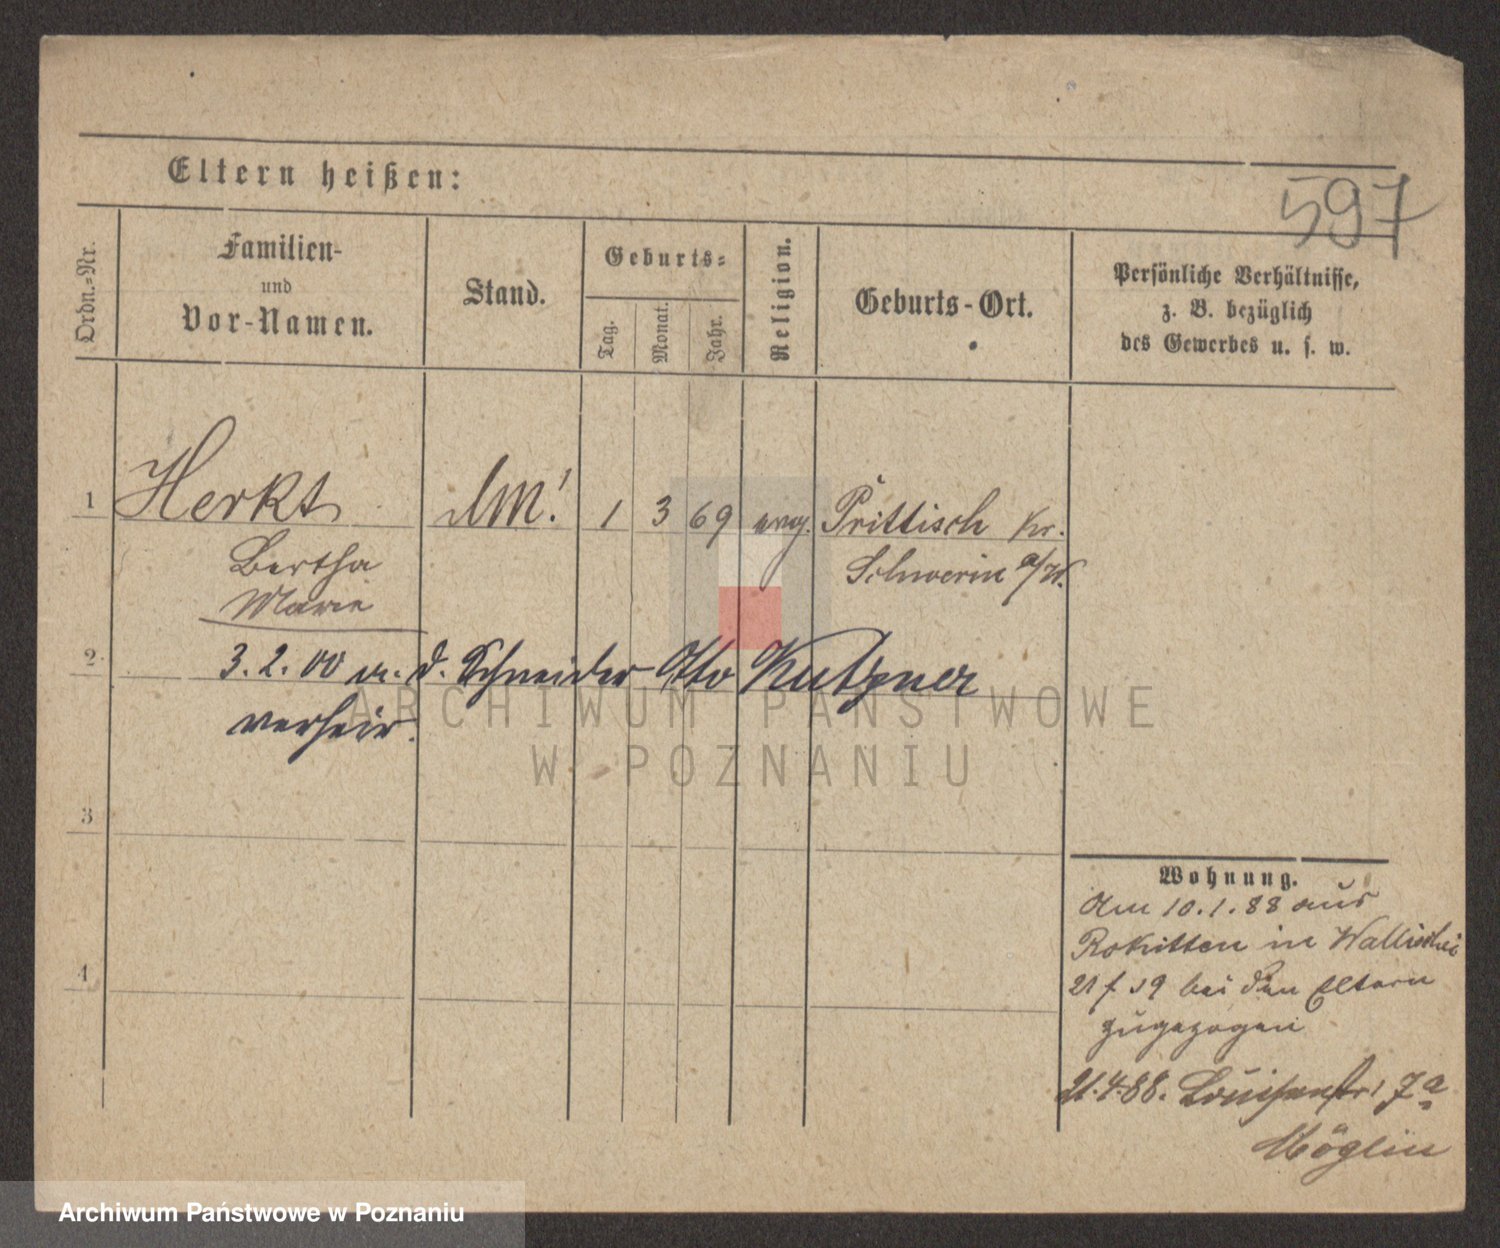 597
Eltern heißen:
Ordn.-Nr.
Familien-
und
Vor-Namen.
Stand.
Geburts-
Tag.
Monat.
Jahr.
Religion.
Geburts-Ort.
Persönliche Verhältnisse,
z. B. bezüglich
des Gewerbes u. s. w.
1 Herkt 1 3 69 evg. Prittisch Kr.
Bertha Schwerin a/W.
Marie
2 3.2.00 m. d. Schneider Otto Kutzner
verheir.
3
4
Wohnung.
Am 10.1.88 aus
Rokitten in Wallischei
21 f 19 bei den Eltern
zugezogen
21.4.88. Louisenstr. 7a
Möglin
ARCHIWUM PAŃSTWOWE
W POZNANIU
Archiwum Państwowe w Poznaniu